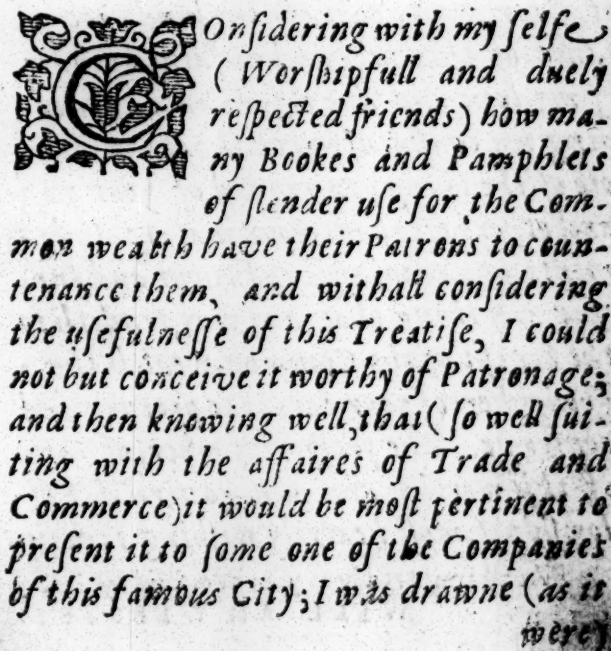 COnſidering with my ſelfe
( Worſhipfull and duely
reſpected friends) how ma-
ny Bookes and Pamphlets
of ſlender uſe for the Com-
mon wealth have their Patrons to coun-
tenance them, and withall conſidering
the uſefulneſſe of this Treatiſe, I could
not but conceive it worthy of Patronage;
and then knowing well, that ( ſo well ſui-
ting with the affaires of Trade and
Commerce) it would be moſt pertinent to
preſent it to ſome one of the Companies
of this famous City; I was drawne (as it
were)